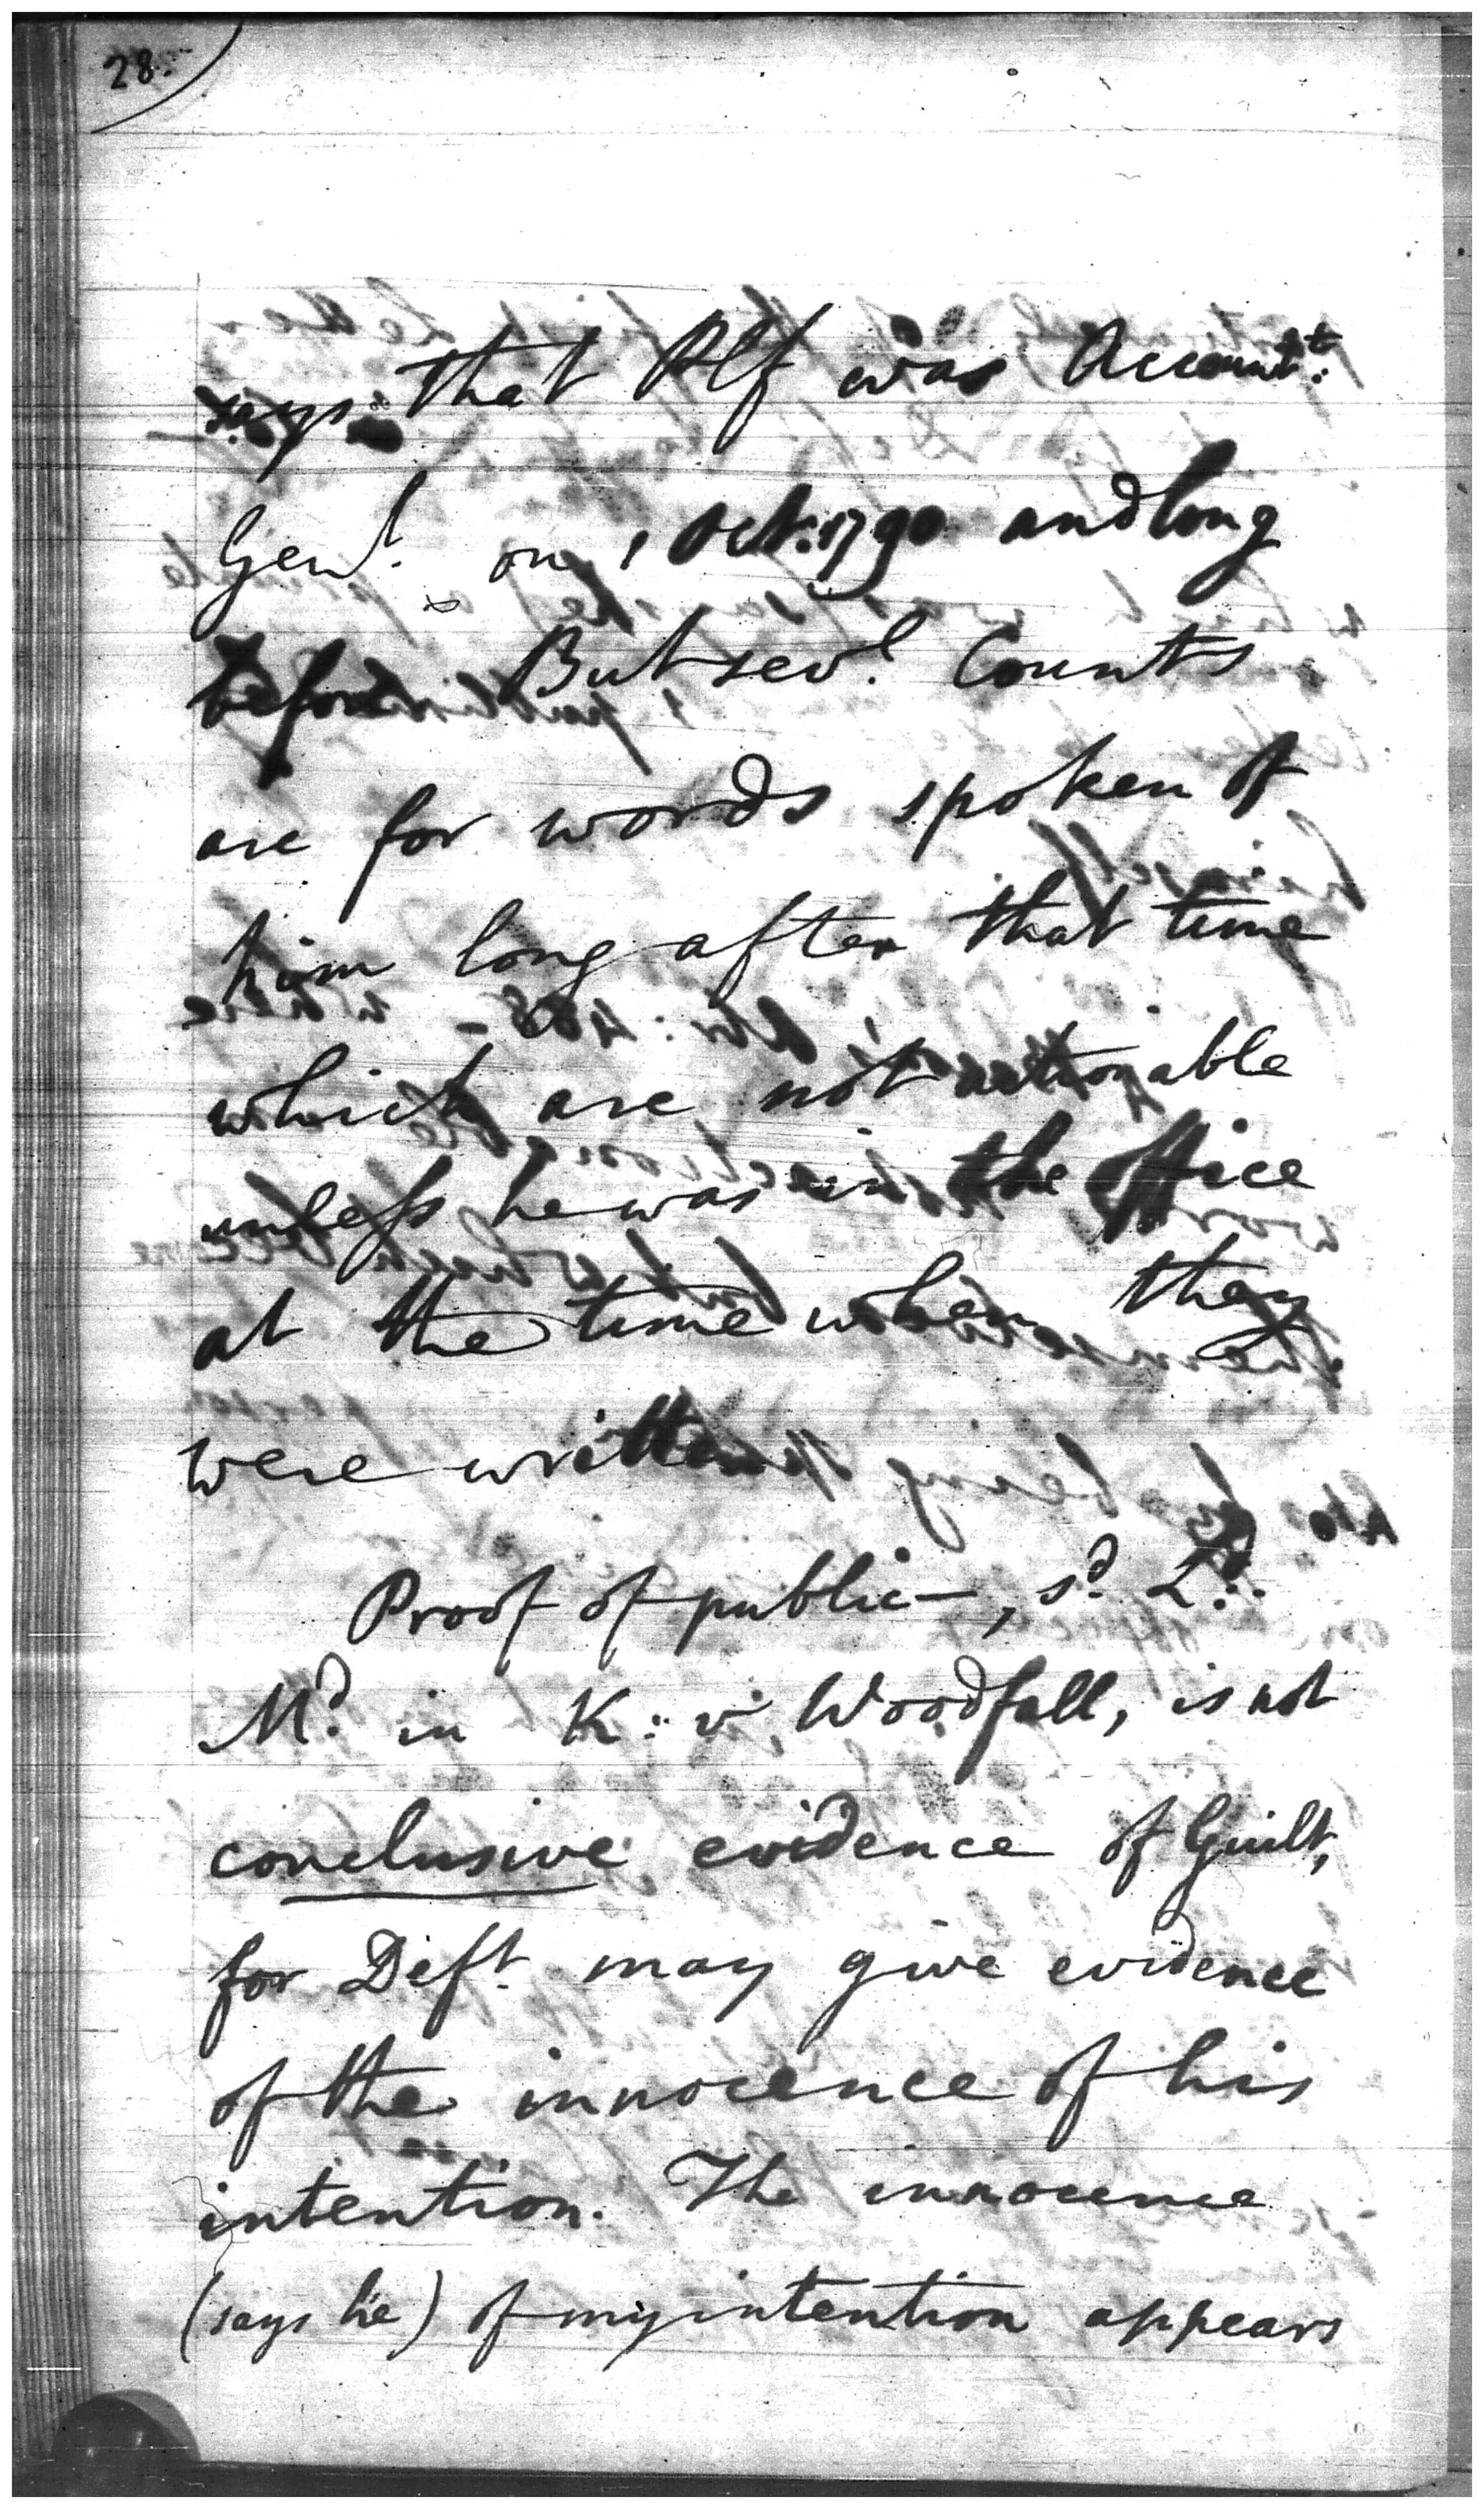 28.
says that Plf was Account.t
Gen.l on 1 Oct: 1790 and long
before But sev.l Counts
are for words spoken of
him long after that time
which are not actionable
unless he was in the office
at the time when they
were written
Proof of public—, s.d L.d:
M.d in K: v Woodfall, is not
conclusive evidence of Guilt,
for Deft. may give evidence
of the innocence of his
intention. The innocence
(says he) of my intention appears